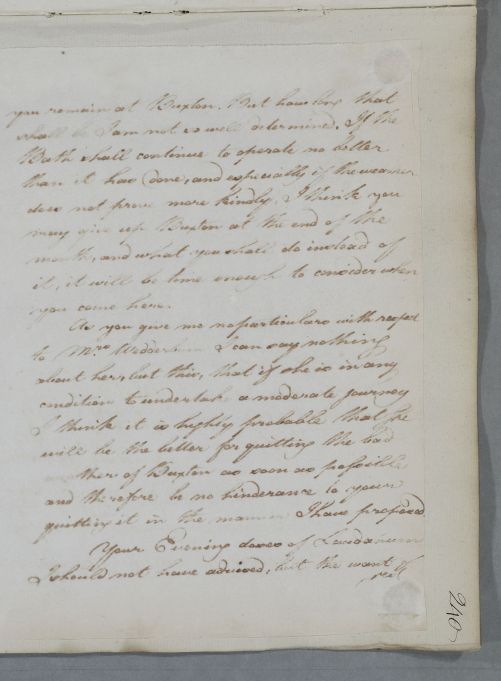 you remain at Buxton. But how long that
shall be I am not so well determined. If the
Bath shall continue to operate no better
than it has done, and especially if the weather
does not prove more kindly, I think you
may give up Buxton at the end of the
month, and what you shall do instead of
it, it will be time enough to consider when
you come here.
As you give me no particulars with respect
to Mrs. Wedderburn I can say nothing
about her but this, that if she is in any
condition to undertake a moderate journey
I think it is highly probable that she
will be the better for quitting the bad
weather of Buxton as soon as possible
and therefore be no hinderance to your
quitting it in the manner I have proposed.
Your Evening doses of Laudanum
I should not have advised, but the want of
rest
240